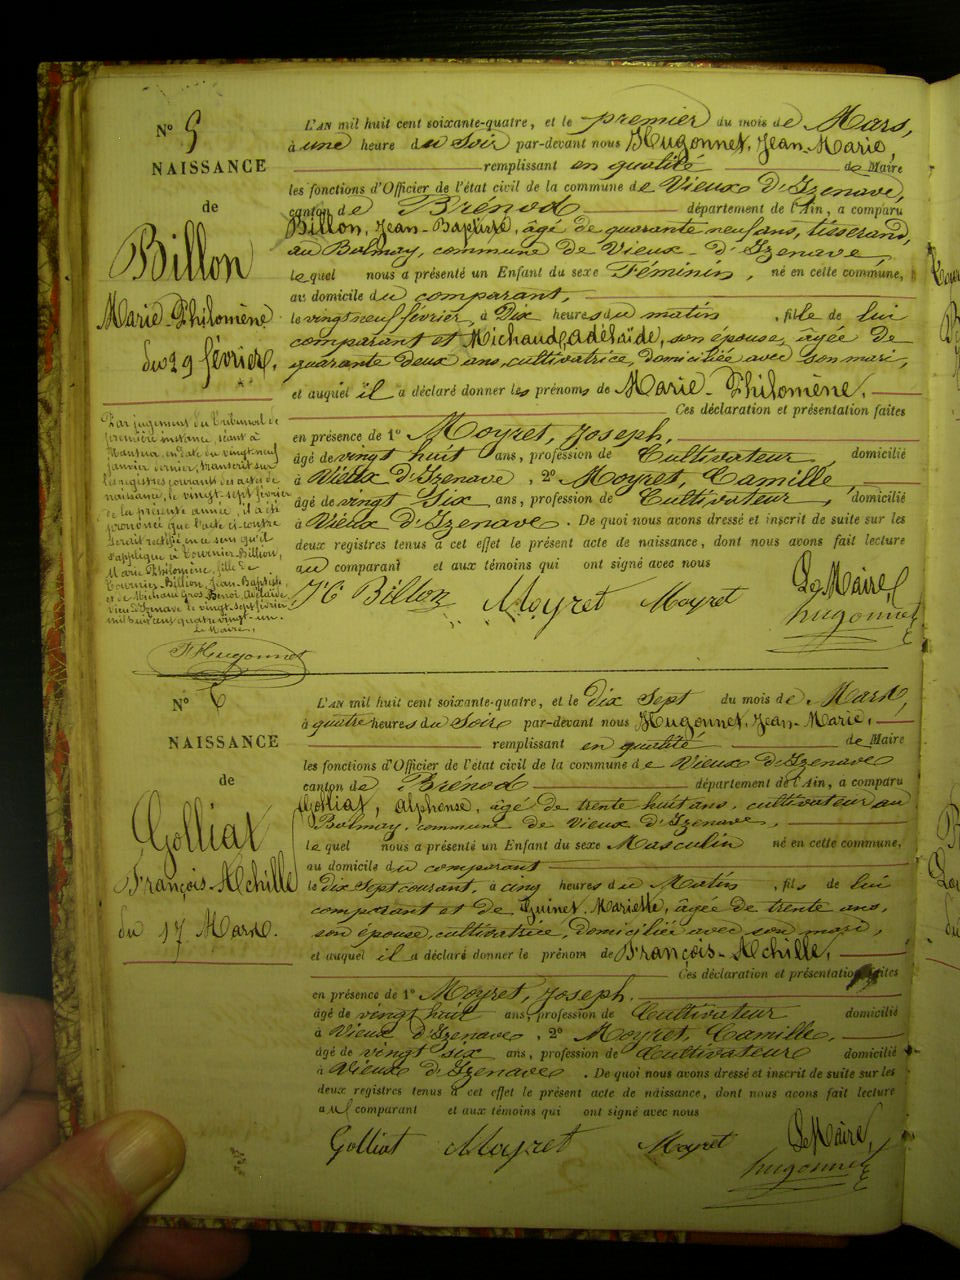 N° 5
NAISSANCE
de
Billon
Marie-Philomène
du 29 février.
Par jugement du Tribunal de
première instance, séant à
Nantua, en date du vingt-neuf
janvier dernier, transcrit sur
les registres courants des actes de
naissance, le vingt-sept février
de la présente année, il a été
prononcé que l'acte ci-contre
serait rectifié en ce sens qu'il
s'applique à Tournier-Billion,
Marie Philomène, fille de
Tournier-Billion, Jean-Baptiste
et de Michaud Gros-Benoi, Adélaïde.
Vieu-d'Izenave le vingt-sept février
mil huit cent quatre vingt-un.
Le Maire,
F Hugonnet
L'AN mil huit cent soixante-quatre, et le premier du mois de Mars,
à une heure du Soir par-devant nous Hugonnet, Jean-Marie,
remplissant en qualité de Maire
les fonctions d'Officier de l'état civil de la commune de Vieux d'Izenave,
canton de Brénod département de l'Ain, a comparu
Billon, Jean-Baptiste, âgé de quarante neuf ans, tisserand,
au Balmay, commune de Vieux-d'Izenave,
lequel nous a présenté un Enfant du sexe Féminin, né en cette commune,
au domicile du comparant,
le vingt neuf février, à Dix heures du matin, fille de lui
comparant et Michaud, adélaïde, son épouse, âgée de
quarante deux ans, cultivatrice, domiciliée avec son mari,
et auquel il a déclaré donner les prénoms de Marie-Philomène.
Ces déclaration et présentation faites
en présence de 1° Moyret, Joseph,
âgé de vingt huit ans, profession de Cultivateur, domicilié
à Vieux d'Izenave, 2° Moyret, Camille,
âgé de vingt Six ans, profession de Cultivateur, domicilié
à Vieux d'Izenave. De quoi nous avons dressé et inscrit de suite sur les
deux registres tenus à cet effet le présent acte de naissance, dont nous avons fait lecture
au comparant et aux témoins qui ont signé avec nous
Billon Moyret Moyret Le Maire,
hugonnet
N° 6
NAISSANCE
de
Golliat
François-Achille
du 17 Mars.
L'AN mil huit cent soixante-quatre, et le dix Sept du mois de Mars,
à quatre heures du Soir par-devant nous Hugonnet, Jean-Marie,
remplissant en qualité de Maire
les fonctions d'Officier de l'état civil de la commune de Vieux d'Izenave
canton de Brénod département de l'Ain, a comparu
Golliat, alphonse, âgé de trente huit ans, cultivateur au
Balmay, commune de Vieux d'Izenave,
lequel nous a présenté un Enfant du sexe Masculin né en cette commune,
au domicile du comparant
le dix Sept courant, à cinq heures du Matin, fils de lui
comparant et de Guinet, Mariette, âgée de trente ans,
son épouse, cultivatrice, domiciliée avec son mari,
et auquel il a déclaré donner le prénom de François-Achille,
Ces déclaration et présentation faites
en présence de 1° Moyret, Joseph,
âgé de vingt huit ans, profession de Cultivateur domicilié
à Vieux d'Izenave, 2° Moyret, Camille,
âgé de vingt six ans, profession de Cultivateur domicilié
à Vieux d'Izenave. De quoi nous avons dressé et inscrit de suite sur les
deux registres tenus à cet effet le présent acte de naissance, dont nous avons fait lecture
au comparant et aux témoins qui ont signé avec nous
Golliat Moyret Moyret Le Maire,
hugonnet